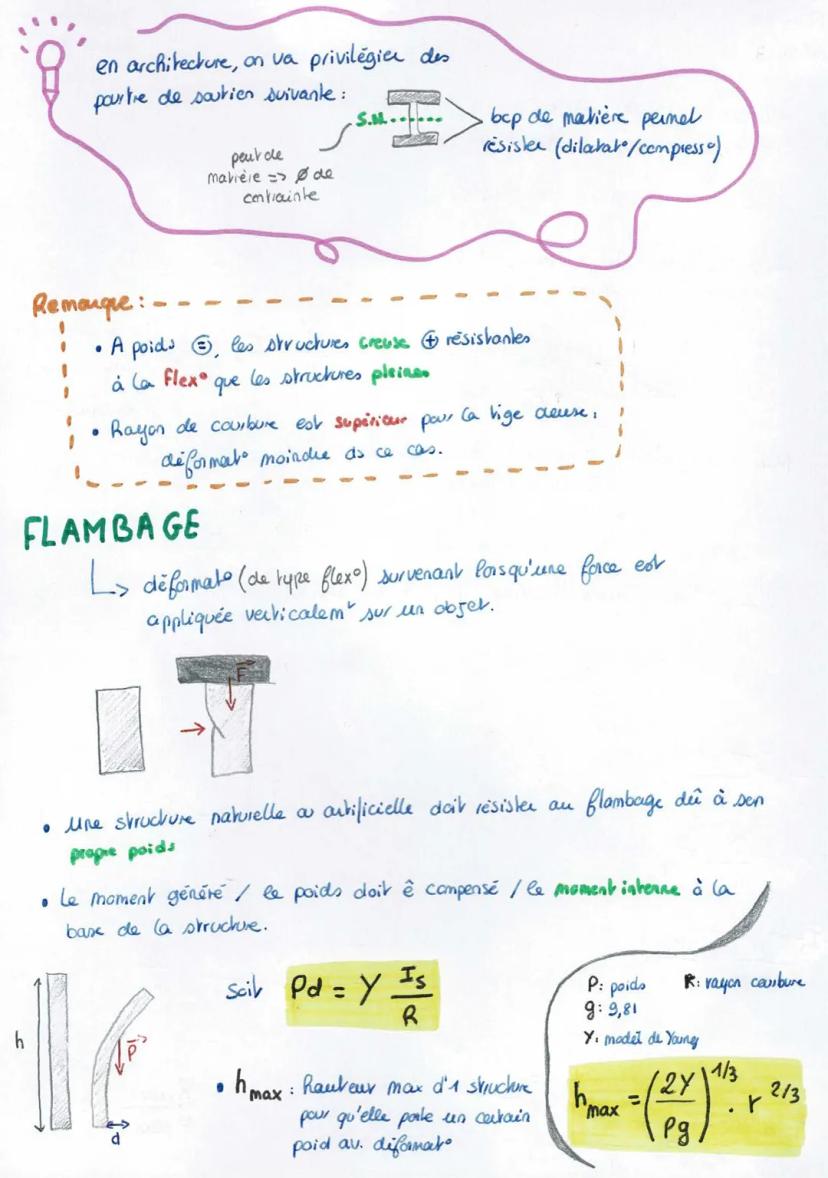 en architecture, on va privilégier des
poutre de soutien suivante :
S.N.
bcp de matière permet
résister (dilatat°/compress°)
peut de
matière => ∅ de
contrainte
Remarque :
• A poids ⊜, les structures creuse ⊕ résistantes
à la flex° que les structures pleines
• Rayon de courbure est supérieur pour la tige creuse,
déformat° moindre ds ce cas.
FLAMBAGE
↳ déformat° (de type flex°) survenant lorsqu'une force est
appliquée verticalemt sur un objet.
F
• Une structure naturelle ou artificielle doit résister au flambage dû à son
propre poids
• Le moment généré / le poids doit ê compensé / le moment interne à la
base de la structure.
h
P
d
soit Pd = Y Is/R
• hmax : Hauteur max d'1 structure
pour qu'elle porte un certain
poid av. déformat°
P: poids R: rayon courbure
g: 9,81
Y: model de Young
hmax = (2Y/Pg)^1/3 . r^2/3